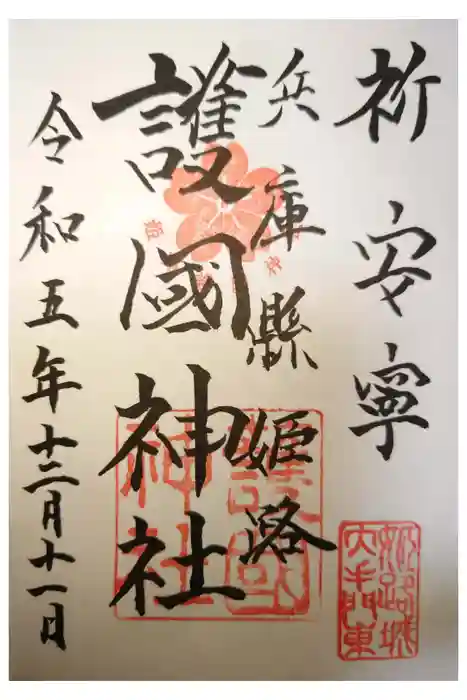 祈安寧
兵庫縣姫路
護國神社
令和五年十二月十一日
姫路城
大手門東
護國
神社